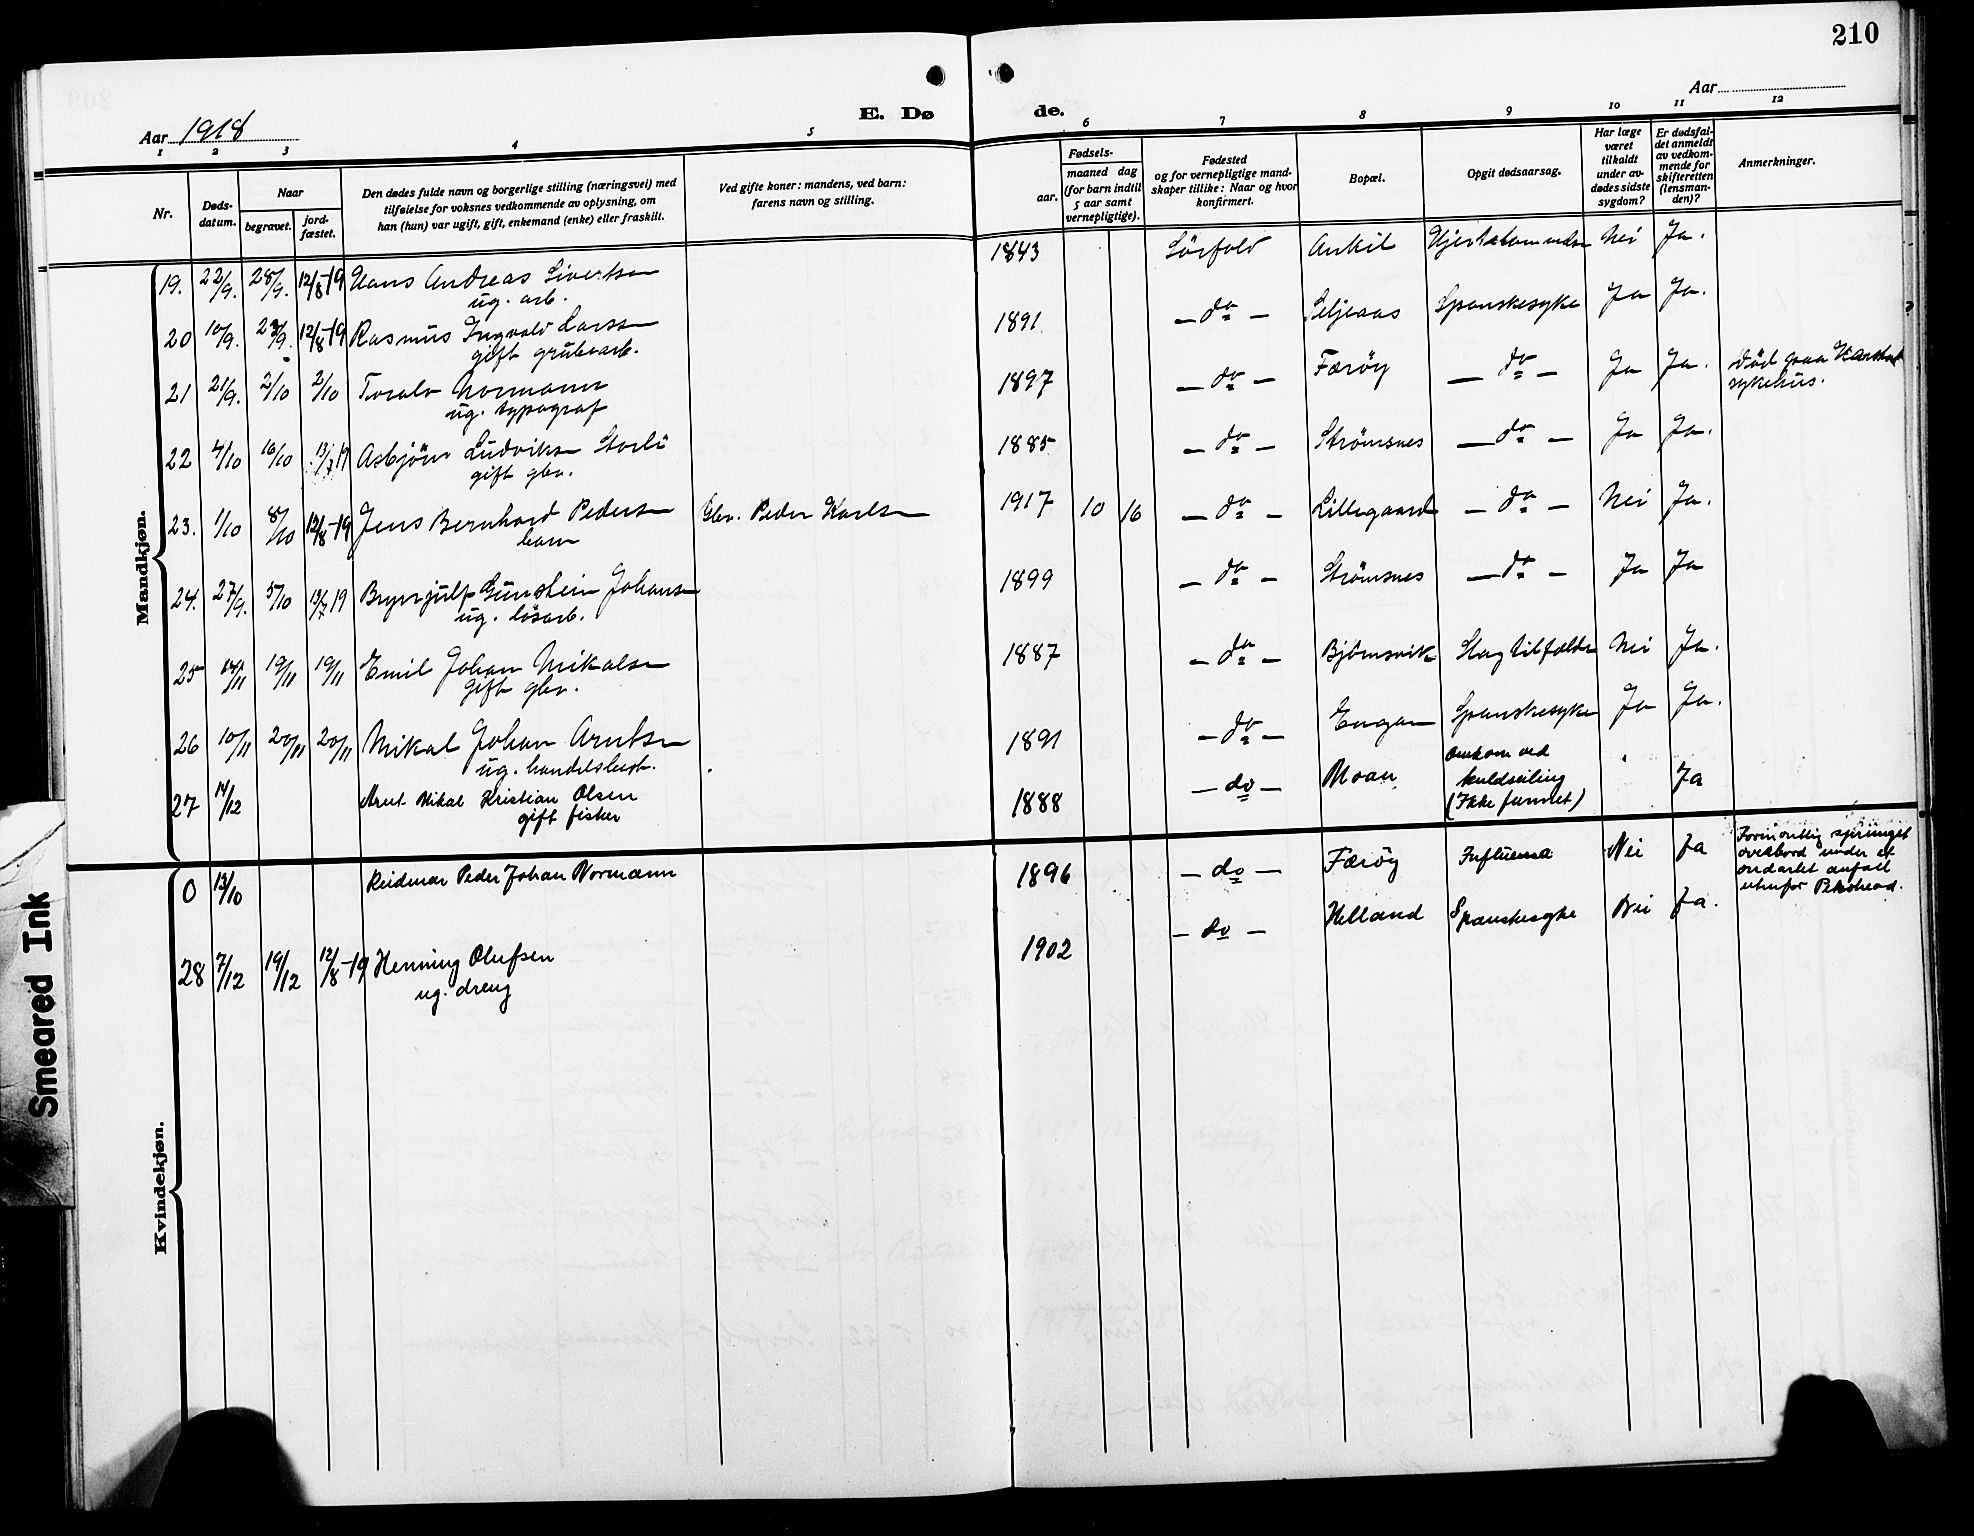 210
E. Døde.
Aar 1918
Aar
1 2 3 4 5 6 7 8 9 10 11 12
Nr.
Døds-
datum.
Naar
begravet.
jord-
fæstet.
Den dødes fulde navn og borgerlige stilling (næringsvei) med
tilføielse for voksnes vedkommende av oplysning, om
han (hun) var ugift, gift, enkemand (enke) eller fraskilt.
Ved gifte koner: mandens, ved barn:
farens navn og stilling.
Fødsels-
aar.
maaned dag
(for barn indtil
5 aar samt
vernepligtige).
Fødested
og for vernepligtige mand-
skaper tillike: Naar og hvor
konfirmert.
Bopæl.
Opgit dødsaarsag.
Har læge
været
tilkaldt
under av-
dødes sidste
sygdom?
Er dødsfal-
det anmeldt
av vedkom-
mende for
skifteretten
(lensman-
den)?
Anmerkninger.
Mandkjøn.
19. 22/9. 28/9. 12/8-19 Hans Andreas Sivertsen 1843 Sörfold Ankil Nei Ja.
ug. arb.
20 10/9. 12/8-19 Rasmus Ingvald Larsen 1891 -do- Seljeaas Spanskesyke Ja Ja.
gift grubearb.
21 21/9. 2/10 2/10 Toralv Normann 1897 -do- Færöy -do- Ja Ja. Död paa Harstad
ug. typograf sykehus.
22 4/10 16/10 13/7 19 Asbjörn Ludviksen Storli 1885 -do- Strömsnes -do- Ja Ja.
gift gbr.
23. 1/10 8/10 12/8-19 Jens Bernhard Pedersen Gbr. Peder Karlsen 1917 10 16 -do- Lillegaard -do- Nei Ja.
barn
24. 27/9. 5/10 13/7 19 Brynjulf Gunstein Johansen 1899 -do- Strömsnes -do- Ja Ja
ug. lösarb.
25 19/11 19/11 Emil Johan Mikalsen 1887 -do- Björnsvik Slagtilfælde Nei Ja.
Gift gbr.
26 10/11 20/11 20/11 Mikal Johan Arntsen 1891 -do- Engan Spanskesyke Ja Ja.
ug. handelsbest.
27 14/12 Arnt Mikal Kristian Olsen 1888 -do- Moan Omkom ved
kuldseiling Ja
gift fisker (Ikke funnet)
Kvindekjøn.
0 13/10 Reidmar Peder Johan Normann 1896 -do- Færöy Influensa Nei Ja Formentlig sprunget
overbord under et
ondartet anfall
utenfor
28 7/12 19/12 12/8-19 Henning Olufsen 1902 -do- Helland Spanskesyke Nei Ja.
ug. dreng
Smeared Ink